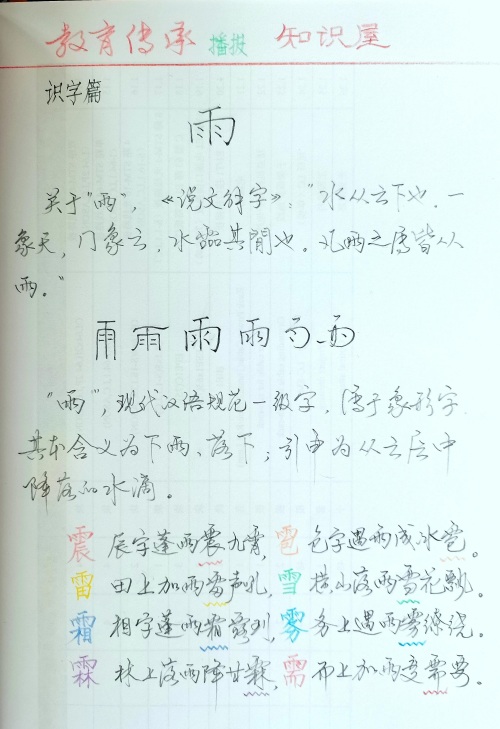 教育传承 播报 知识屋
识字篇
雨
关于"雨",《说文解字》:"水从云下也。一
象天,冂象云,水霝其閒也。凡雨之属皆从
雨。"
雨 雨 雨 雨 雨
"雨",现代汉语规范一级字,属于象形字
其本含义为下雨、落下;引申为从云层中
降落的水滴。
震 辰字逢雨震九霄,雹 包字遇雨成冰雹。
雷 田上加雨雷声轧,雪 横山落雨雪花飘。
霜 相字逢雨霜露列,雾 务上遇雨雾缭绕。
霖 林上落雨降甘霖,需 而上加雨变需要。